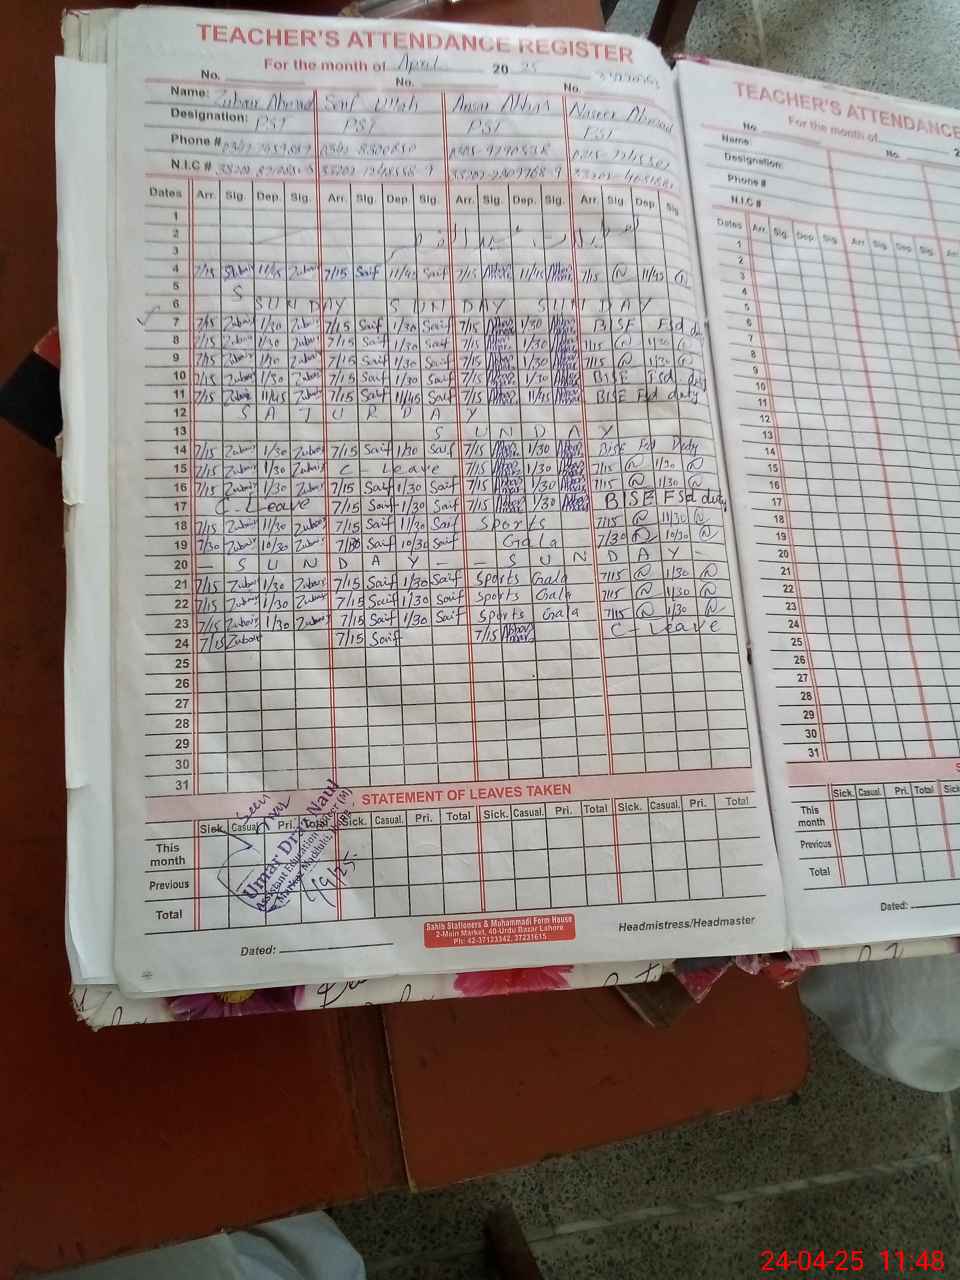 TEACHER'S ATTENDANCE REGISTER
For the month of April 2025
No. No. No.
Name: Zubair Ahmad Saif Ullah Ansar Abbas Naseer Ahmad
Designation: PST PST PST PST
Phone #
N.I.C #
Dates Arr. Sig. Dep. Sig. Arr. Sig. Dep. Sig. Arr. Sig. Dep. Sig. Arr. Sig. Dep. Sig.
1
2
3
4 7/15 Zubair 11/45 Zubair 7/15 Saif 11/45 Saif 7/15 11/45 7/15 11/45
5 S
6 SUNDAY SUNDAY SUNDAY
7 7/15 Zubair 1/30 Zubair 7/15 Saif 1/30 Saif 7/15 1/30 BISE Fsd duty
8 7/15 Zubair 1/30 Zubair 7/15 Saif 1/30 Saif 7/15 1/30 7/15 1/30
9 7/15 Zubair 1/30 Zubair 7/15 Saif 1/30 Saif 7/15 1/30 7/15 1/30
10 7/15 Zubair 1/30 Zubair 7/15 Saif 1/30 Saif 7/15 1/30 BISE Fsd duty
11 7/15 Zubair 11/45 Zubair 7/15 Saif 11/45 Saif 7/15 11/45 BISE Fsd duty
12 SATURDAY
13 SUNDAY
14 7/15 Zubair 1/30 Zubair 7/15 Saif 1/30 Saif 7/15 1/30 BISE Fsd Duty
15 7/15 Zubair 1/30 Zubair C-Leave 7/15 1/30 7/15 1/30
16 7/15 Zubair 1/30 Zubair 7/15 Saif 1/30 Saif 7/15 1/30 7/15 1/30
17 C-Leave 7/15 Saif 1/30 Saif 7/15 1/30 BISE Fsd duty
18 7/15 Zubair 11/30 Zubair 7/15 Saif 11/30 Saif Sports 7/15 11/30
19 7/30 Zubair 10/30 Zubair 7/30 Saif 10/30 Saif Gala 7/30 10/30
20 - SUNDAY - - SUNDAY -
21 7/15 Zubair 1/30 Zubair 7/15 Saif 1/30 Saif Sports Gala 7/15 1/30
22 7/15 Zubair 1/30 Zubair 7/15 Saif 1/30 Saif Sports Gala 7/15 1/30
23 7/15 Zubair 1/30 Zubair 7/15 Saif 1/30 Saif Sports Gala 7/15 1/30
24 7/15 Zubair 7/15 Saif 7/15 C-Leave
25
26
27
28
29
30
31
STATEMENT OF LEAVES TAKEN
Sick. Casual. Pri. Total Sick. Casual. Pri. Total Sick. Casual. Pri. Total Sick. Casual. Pri. Total
This month
Previous
Total
Seen
Umar Draz Naul
Assistant Education Officer (M)
Dated:
Sahib Stationers & Muhammadi Form House
2-Main Market, 40-Urdu Bazar Lahore
Ph: 42-37123342, 37231615
Headmistress/Headmaster
TEACHER'S ATTENDANCE
For the month of
No. No.
Name:
Designation:
Phone #
N.I.C #
Dates Arr. Sig. Dep. Sig. Arr. Sig. Dep. Sig.
1
2
3
4
5
6
7
8
9
10
11
12
13
14
15
16
17
18
19
20
21
22
23
24
25
26
27
28
29
30
31
Sick. Casual. Pri. Total Sick. Casual.
This month
Previous
Total
Dated:
24-04-25 11:48